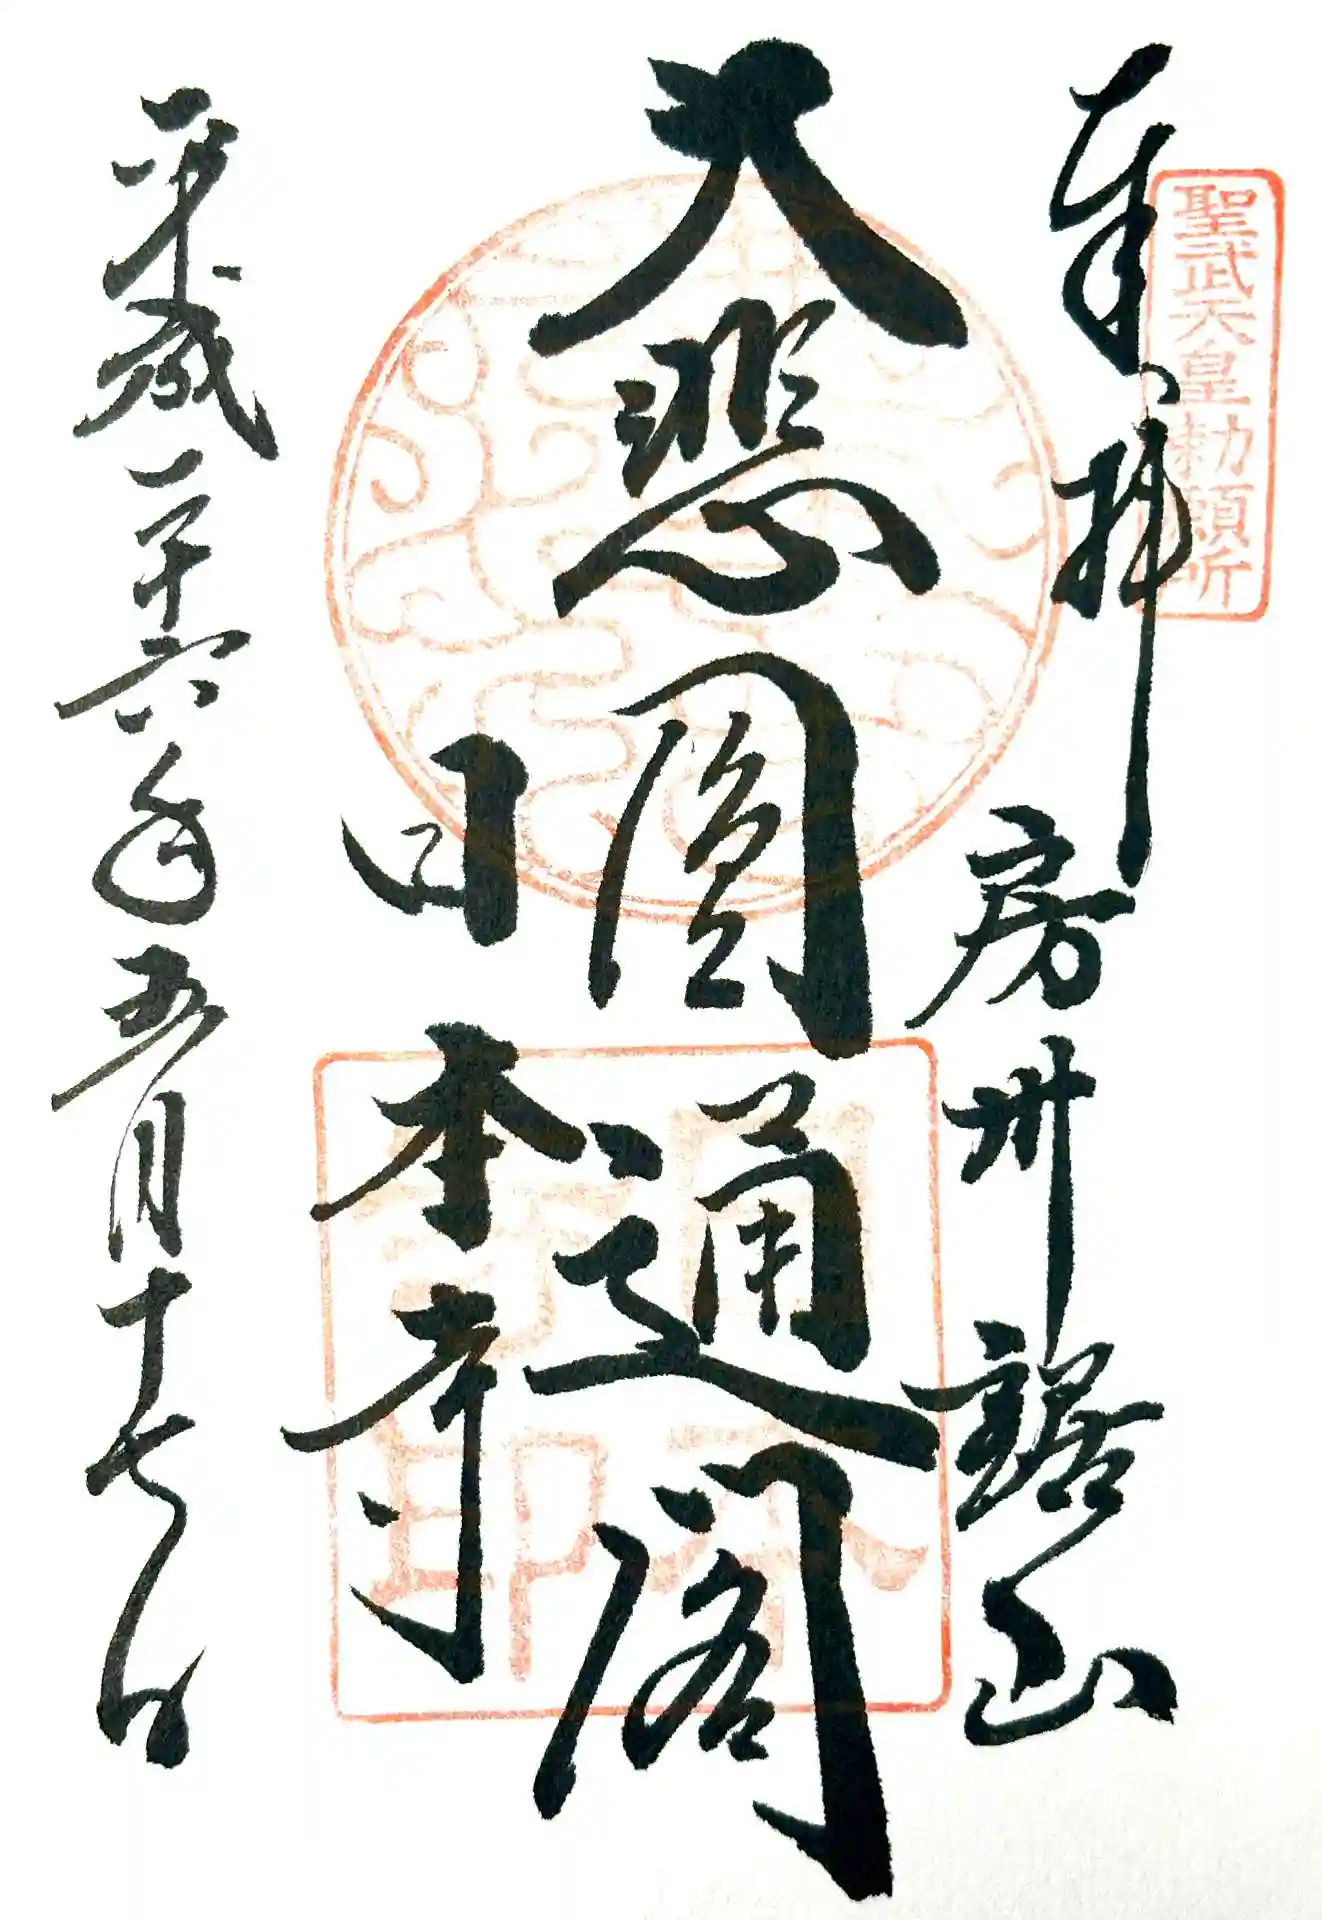 聖武天皇勅願所
奉拝
房州鋸山
大悲圓通閣
日本寺
日本寺印
平成二十六年五月十七日